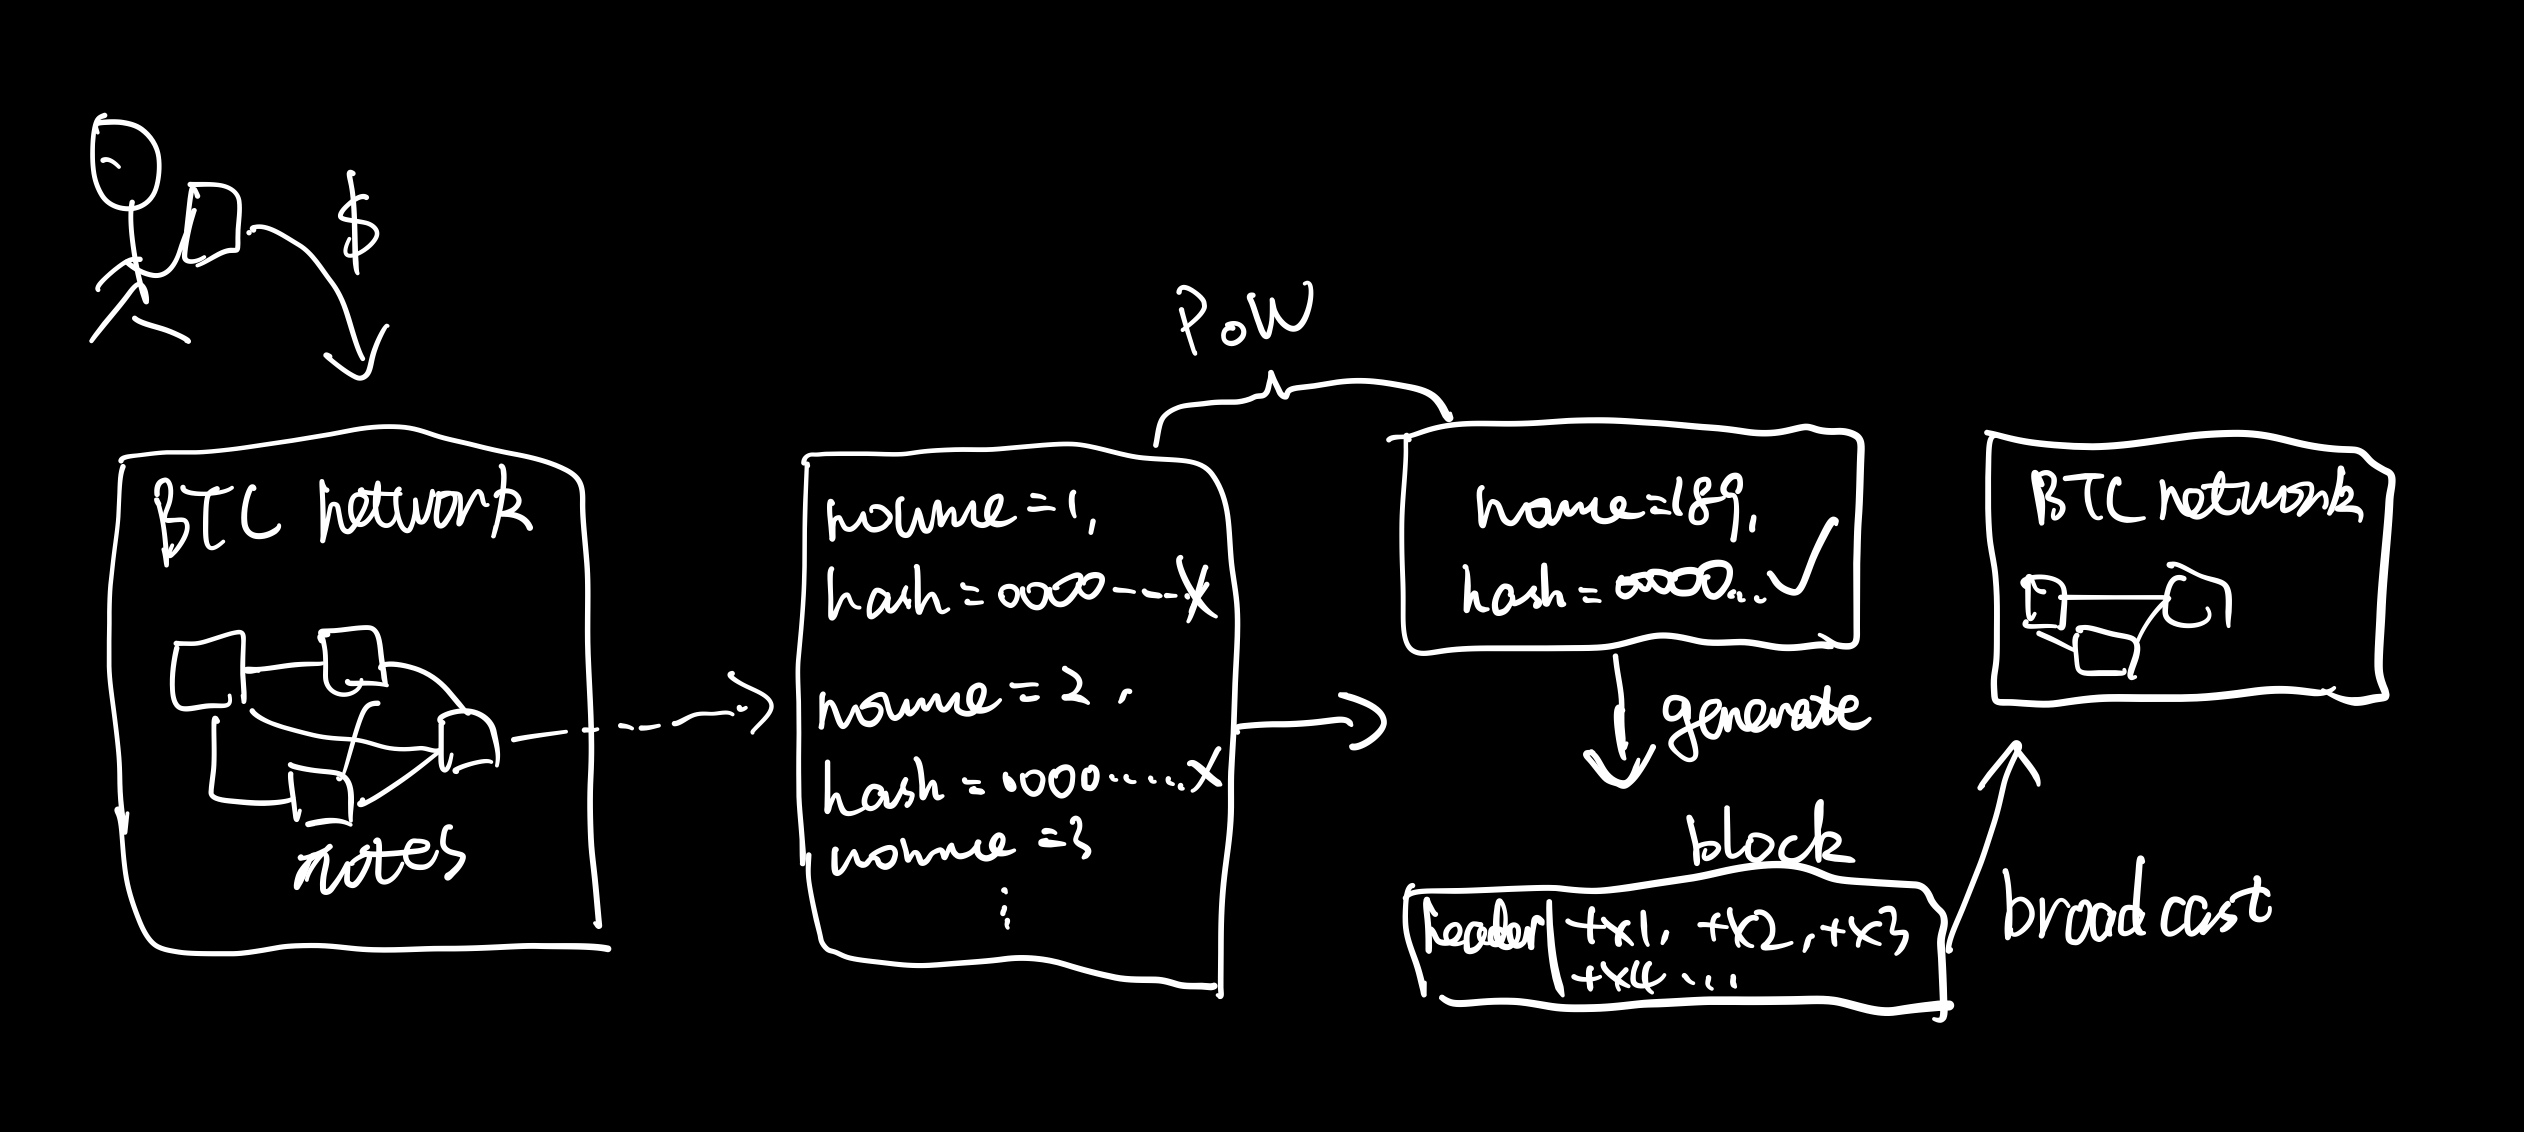 $
BTC network
notes
PoW
nounce = 1,
hash = 0000---X
nounce = 2,
hash = 0000.....X
nounce = 3
⋮
nounce=189,
hash = 00000... ✓
generate
block
header | tx1, tx2, tx3
tx4 ...
broadcast
BTC network